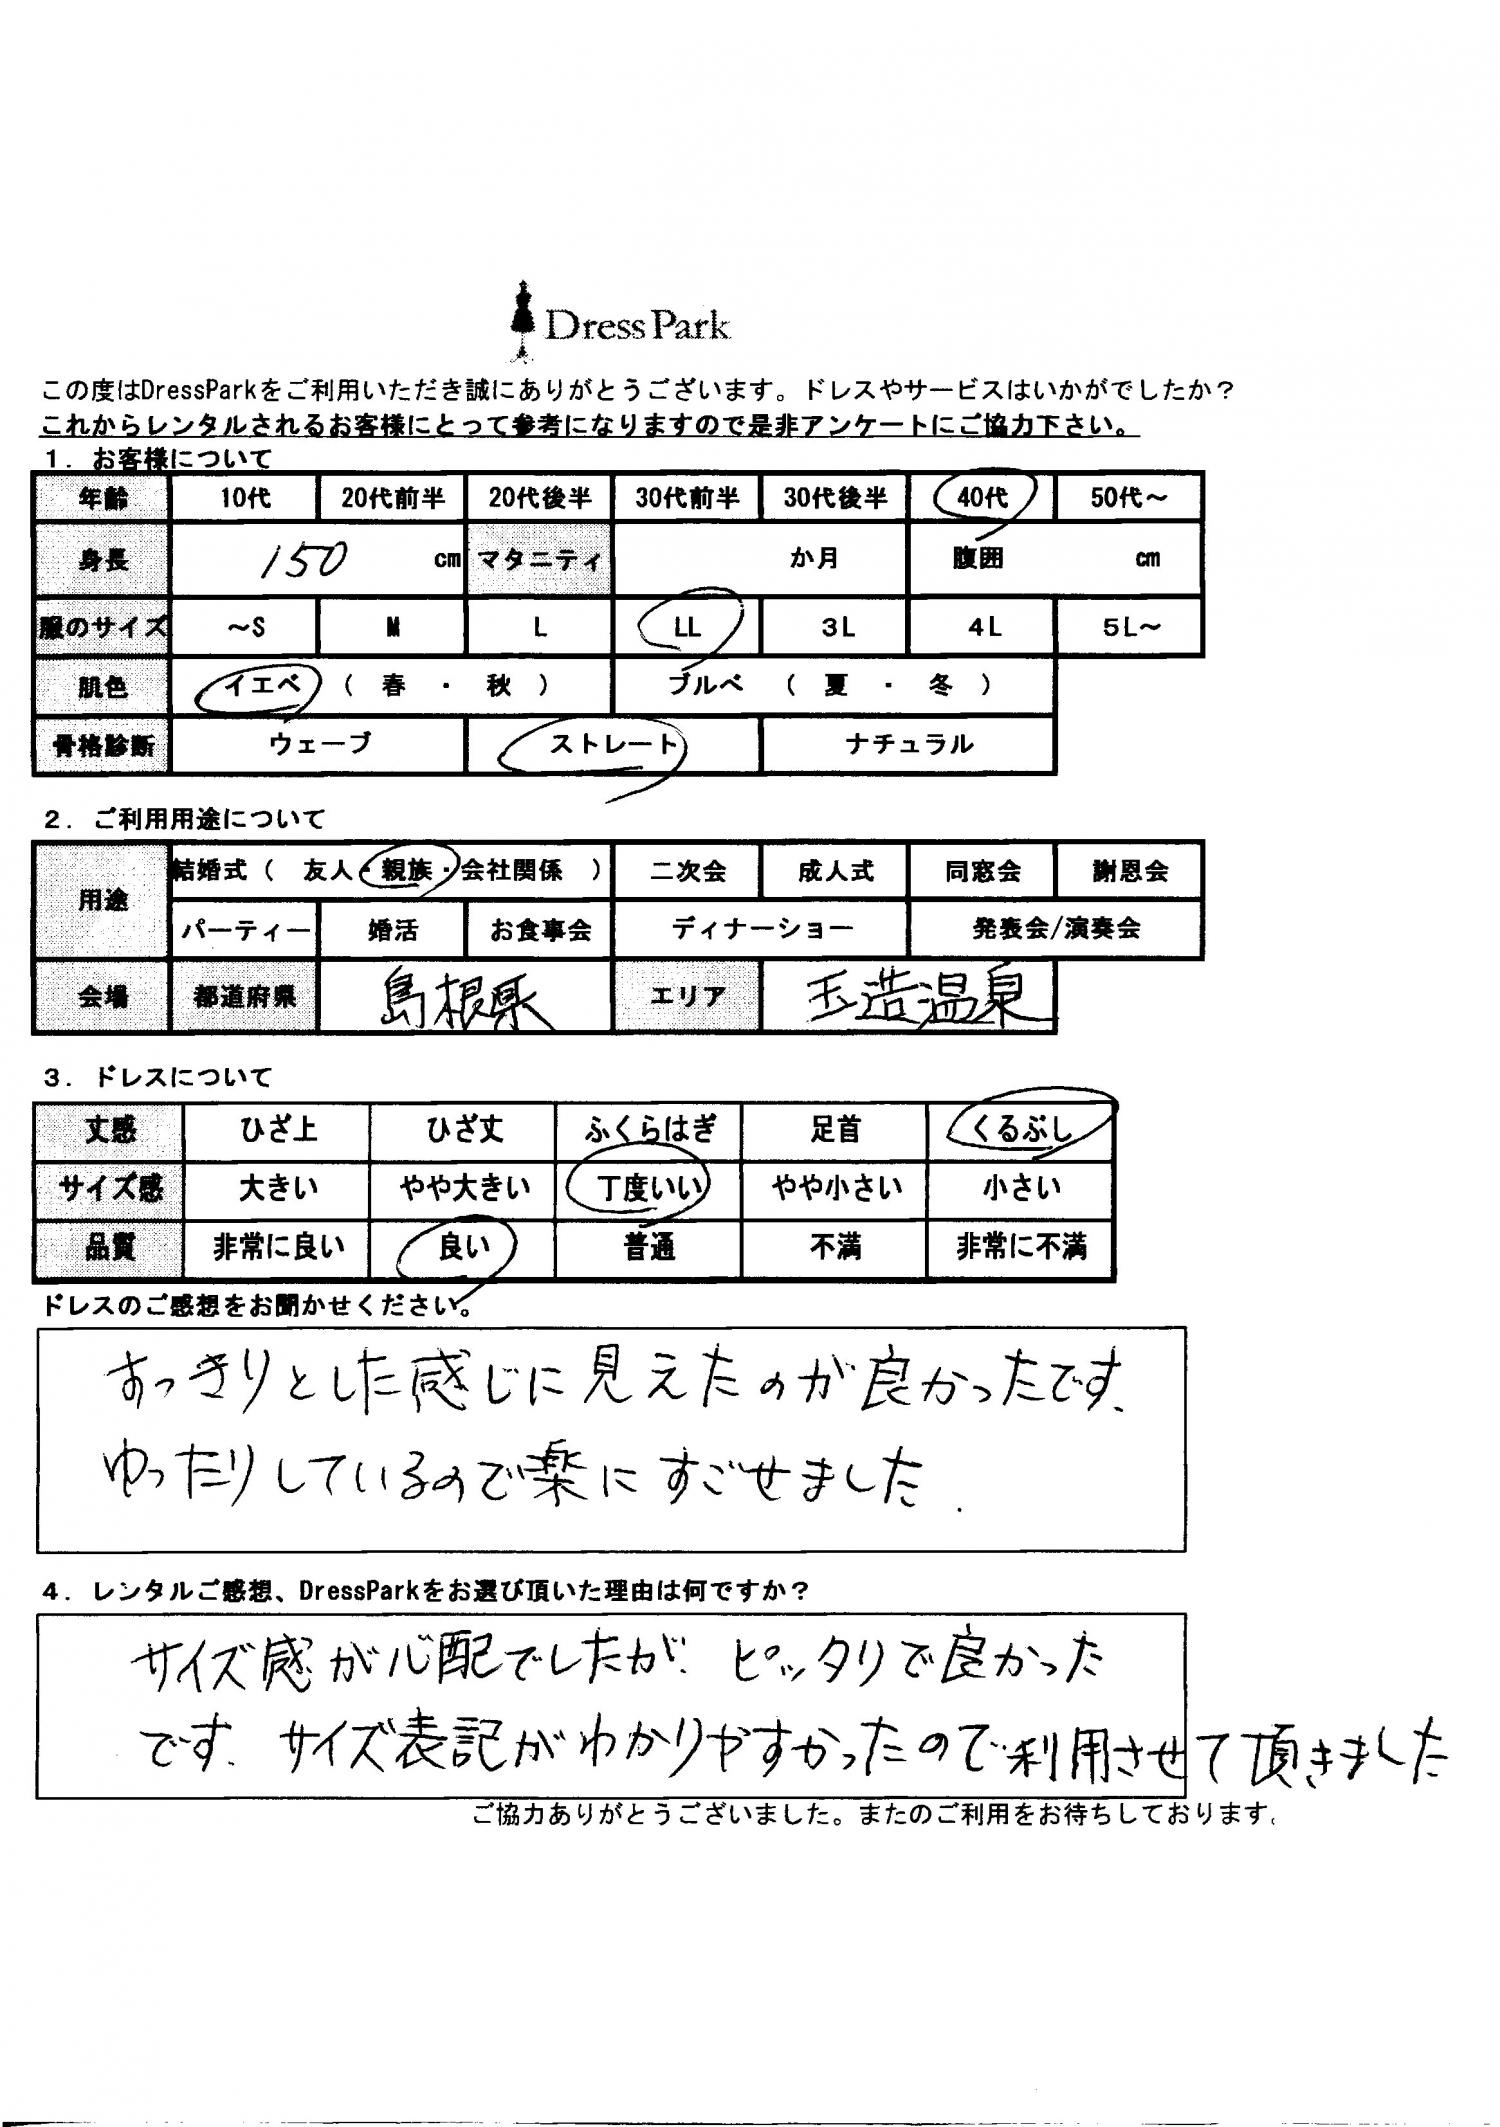 DressPark
この度はDressParkをご利用いただき誠にありがとうございます。ドレスやサービスはいかがでしたか？
これからレンタルされるお客様にとって参考になりますので是非アンケートにご協力下さい。
１．お客様について
年齢 10代 20代前半 20代後半 30代前半 30代後半 40代 50代～
身長 150 cm マタニティ か月 腹囲 cm
服のサイズ ～S M L LL 3L 4L 5L～
肌色 イエベ （ 春 ・ 秋 ） ブルベ （ 夏 ・ 冬 ）
骨格診断 ウェーブ ストレート ナチュラル
２．ご利用用途について
用途 結婚式（ 友人・親族・会社関係 ） 二次会 成人式 同窓会 謝恩会
パーティー 婚活 お食事会 ディナーショー 発表会/演奏会
会場 都道府県 島根県 エリア 玉造温泉
３．ドレスについて
丈感 ひざ上 ひざ丈 ふくらはぎ 足首 くるぶし
サイズ感 大きい やや大きい 丁度いい やや小さい 小さい
品質 非常に良い 良い 普通 不満 非常に不満
ドレスのご感想をお聞かせください。
すっきりとした感じに見えたのが良かったです.
ゆったりしているので楽にすごせました.
４．レンタルご感想、DressParkをお選び頂いた理由は何ですか？
サイズ感が心配でしたが ピッタリで良かった
です. サイズ表記がわかりやすかったので利用させて頂きました
ご協力ありがとうございました。またのご利用をお待ちしております。